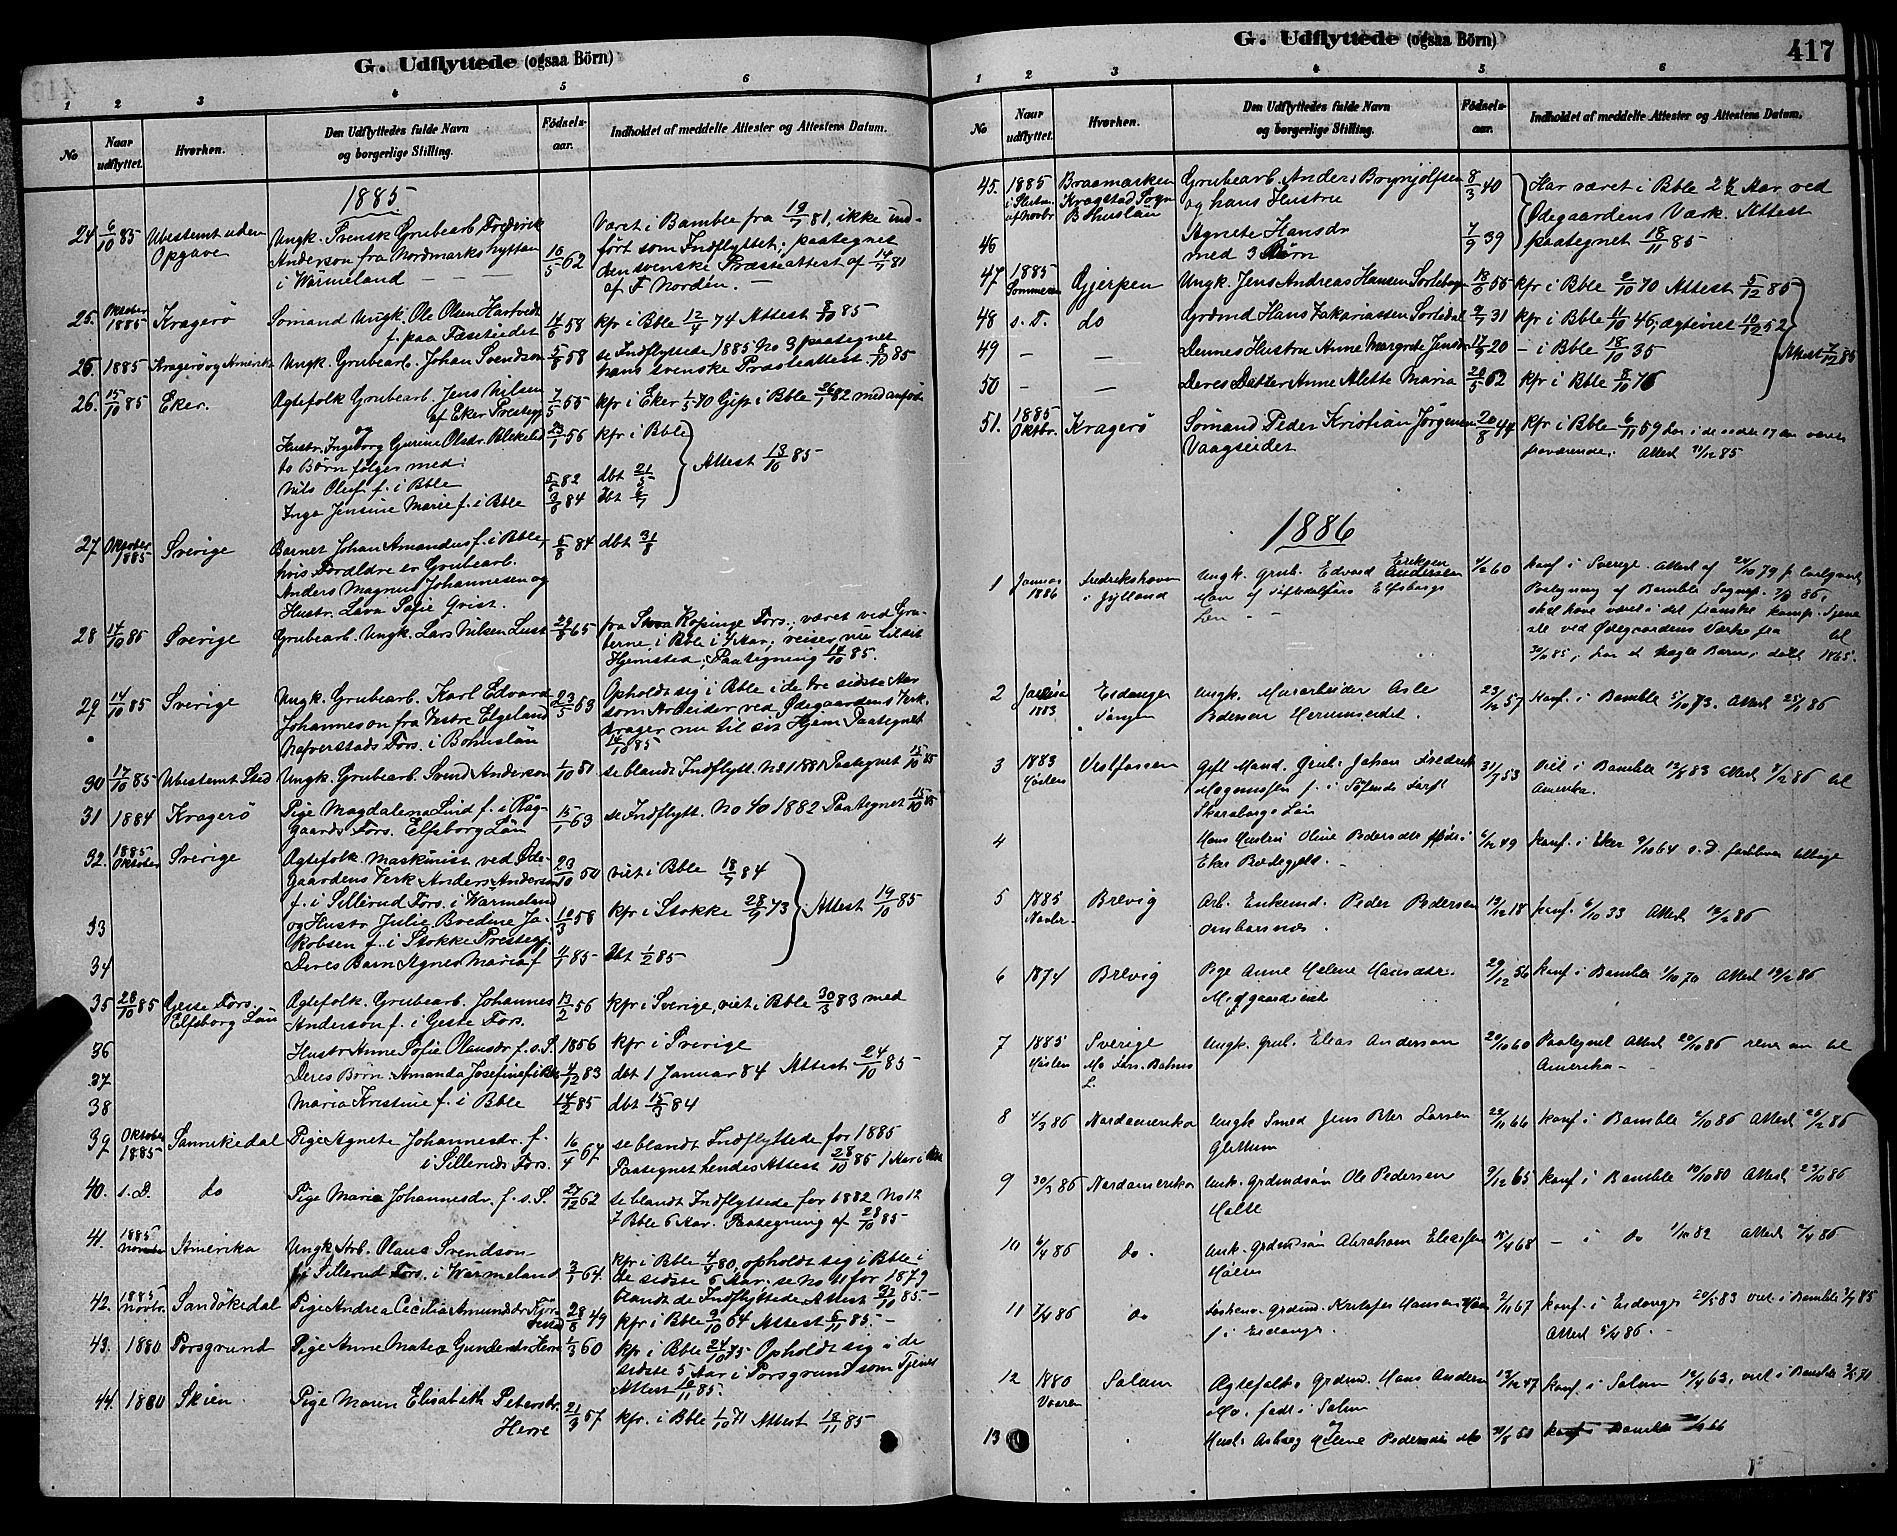 G. Udflyttede (ogsaa Börn)
1 2 3 4 5 6
No
Naar udflyttet.
Hvorhen.
Den Udflyttedes fulde Navn og borgerlige Stilling.
Fødselsaar.
Indholdet af meddelte Attester og Attestens Datum.
1885
24 6/10 85 Ubestemt uden Ungk. Svensk Grubearb. Fredrik Været i Bamble fra 19/7 81, ikke ind-
Opgave Anderson fra Nordmarkshyttan 10/5 62 ført som Indflyttet; paategnet
i Wärmeland den svenske Præsteattest af 14/7 81
af F. Nordén.
25. Oktober 1885 Kragerö Sömand Ungk. Ole Olsen Hartvedt 14/6 58 kfr i Bble 12/4 74 Attest 8/10 85
f. paa Fasseidet
26. 1885 Kragerö og Amerika Ungk. Grubearb. Johan Svendson 5/8 58 se Indflyttede 1885 No 3 paategnet
hans svenske Præsteattest. 8/10 85
26. 15/10 85 Eker. Ægtefolk Grubearb. Jens Nilsen 7/5 55 kfr i Eker 1/5 70 Gift i Bble 26/1 82 med anført
af Eker Prestegj.
og
Hustr. Ingeborg Gurine Olsdr. Blekelid 23/1 56 kfr i Bble
to Börn følger med: Attest 13/10 85
Nils Oluf f. i Bble 5/5 82 dbt 21/5
Inga Jensine Marie f. i Bble 84 Dbt
27 Oktober 1885 Sverige Barnet Johan Amandus f. i Bble, 5/8 84 dbt 31/8
hvis Forældre er Grubearb.
Anders Magnus Johannesen og
Hustr. Lava Sofie Qvist.
28 14/10 85 Sverige Grubearb. Ungk. Lars Nilsen Lust 29/8 65 fra Stora Köpinge Fors.; været ved Gru-
berne i Bble i 4 Aar; reiser nu til sit
Hjemsted; Paategning 14/10 85.
29 14/10 85 Sverige Ungk. Grubearb. Karl Edvard 23/5 63 Opholdt sig i Bble i de tre sidste Aar
Johanneson fra Vestre Elgeland som Arbeider ved Ødegaardens Verk.
Nafverstads Fors. i Bohuslän drager nu til sit Hjem Paategnet
14/10 85
30 17/10 85 Ubestemt Sted Ungk. Grubearb. Svend Anderson 1/10 51 se blandt Indflytt. No 1 1881 Paategnet 15/10 85
31 1884 Kragerö Pige Magdalena Lind f. i Råg- 15/1 63 se Indflytt. No 40 1882 Paategnet 15/10 85
gaards Fors. Elfsborg Län
32. 1885 Oktober Sverige Ægtefolk. Maskinist ved Øde- 23/10 50 viet i Bble 18/7 84
gaardens Verk Anders Anderson
f. i Sillerud Fors. i Wärmeland Attest 19/10 85
33 og Hustr. Julie Bredine Ja- 10/3 58 kfr i Stokke 28/9 73
kobsen f. i Stokke Prestegj.
34 Deres Barn Agnes Maria f 4/1 85 Dbt 1/2 85
35 28/10 85 Geste Fors. Ægtefolk. Grubearb. Johannes 13/2 56 kfr i Sverige, viet i Bble 30/3 83 med
Elfsborg Län Anderson f. i Geste Fors.
36 Hustr. Anne Sofie Olausdr. f. s. S. 1856 kfr i Sverige
37 Deres Börn: Amanda Josefine f. i Bble 4/12 83 dbt 1 Januar 84 Attest 24/10 85
38 Maria Kristine f. i Bble 14/2 85 dbt 15/3 84
39 Oktober 1885 Sannikedal Pige Agnete Johannesdr. f. 16/4 67 se blandt Indflyttede for 1885
i Sillerud Fors. Paategnet hendes Attest 28/10 85 1 Aar i Bble
40. s. D. do Pige Maria Johannesdr. f. s. S. 27/12 62 se blandt Indflyttede for 1882 No 12
I Bble 6 Aar. Paategning af 28/10 85
41. 1885 Novmber Amerika Ungk. Arb. Olaus Svendson 3/1 64 kfr i Bble 4/4 80, opholdt sig i Bble i
f. i Sillerud Fors. i Wärmeland de sidste 6 Aar se No 41 for 1879
blandt de Indflyttede Attest 31/10 85.
42. 1885 Novbr. Sandökedal Pige Andrea Cecilia Amundsdr. 28/6 49 kfr i Bble 9/10 64 Attest 6/11 85
43. 1880 Porsgrund Pige Anne Matea Gundersdr. Herre 1/3 60 kfr i Bble 24/10 75 Opholdt sig i de
sidste 5 Aar i Porsgrund som Tjener
Attest 10/11 85.
44. 1880 Skien Pige Maren Elisabeth Petersdr. 21/3 57 kfr. i Bble 1/10 71 Attest 18/11 85
Herre
G. Udflyttede (ogsaa Börn)
417
1 2 3 4 5 6
No
Naar udflyttet.
Hvorhen.
Den Udflyttedes fulde Navn og borgerlige Stilling.
Fødselsaar.
Indholdet af meddelte Attester og Attestens Datum.
45. 1885 Braamarken Grubearb. Anders Brynjolfsen 8/3 40 Har været i Bble 2 1/2 Aar ved
i Slutn. af Novbr Kragstad Sogn og hans Hustru Ødegaardens Værk. Attest
Bohuslän
46 Agnete Hansdr 7/9 39 paategnet 18/11 85
med 3 Børn
47 1885 Sommeren Gjerpen Ungk. Jens Andreas Hansen 18/6 55 kfr i Bble 2/10 70 Attest 5/12 85
48 s. D. do Grdmd Hans Zakariassen 2/7 31 kfr i Bble 11/10 46, ægteviet 10/12 52
49 — — Dennes Hustru Anne Margrete Jensdr 17/9 20 — i Bble 18/10 35 Attest 7/12 85
50 — — Deres Datter Anne Alette Maria 20/5 62 kfr i Bble 8/10 76
51. 1885 Oktbr. Kragerö Sömand Peder Kristian Jørgensen 20/8 44 kfr i Bble 6/11 59 har i de sidste 17 aar været
Vaagseidet fraværende. Attest 31/12 85
1886
1 Januar 1886 Fredrikshavn Ungk. Grub. Edvard Eriksen Andersen 4/2 60 konf. i Sverige. Attest af 24/10 79 f.
i Jylland Elfsborgs Paategning af Bamble Sognep. 7/1 86,
Len skal have været i det franske komp. Tjene-
ste ved Ødegaardens Værker fra til
31/10 85,
2 1883 Eidanger Ungk. Murarbeider Asle 23/12 57 Konf. i Bamble 5/10 73. Attest 25/1 86
Pedersen Herumseidet.
3 1883 Høsten Vestfossen Gift Mand. Grub. Johan Fredrik 31/7 53 Viet i Bamble 83 Attest 8/2 86 til
Magnusson f. i Amerika.
Skaraborgs Län
4 Hans Hustru Oline Pedersdtr født i 6/12 49 konf. i Eker 9/10 64 s. D.
Eker Prestegjeld.
5 1885 Novbr Brevig Arb. Enkemd. Peder Pedersen 19/12 18 konf. 6/10 33 Attest 12/2 86
Ombarsnes.
6 1874 Brevig Pige Anne Helene Hansdtr. 29/12 56 konf i Bamble 1/10 70 Attest 19/2 86
7 1885 Høsten Sverige Ungk. Grub. Elias Anderson 22/10 60 Paategnet Attest 20/10 86 til
Mo Fors. Bahus L. Amerika
8 4/3 86 Nordamerika Ungk Smed Jens Peter Larsen 22/11 66 konf. i Bamble 2/10 86 Attest 26/2 86
9 30/3 86 Nordamerika Unk. Grdmdsön Ole Pedersen 9/12 65 konf i Bamble 10/10 80 Attest 23/10 86
10 6/4 86 do. Unk. Grdmdsön Abraham Eliassen 18/4 68 — i do 1/10 82 Attest 4/4 86
11 2/4 86 do Grdmd. Kristofer Hansen 2/11 67 konf. i Eidanger 20/5 83 viet i Bamble 3/7 85
f. i Eidanger. Attest 5/4 86.
12 1880 Vaaren Solum Ægtefolk. Grdmd. Hans Anders. 13/12 47 konf. i Solum 12/4 63, viet i Bamble 71
Mo. født i Solum
og
13 Hust. Helene Pedersdtr Mo 30/8 50 konf Bamble 66